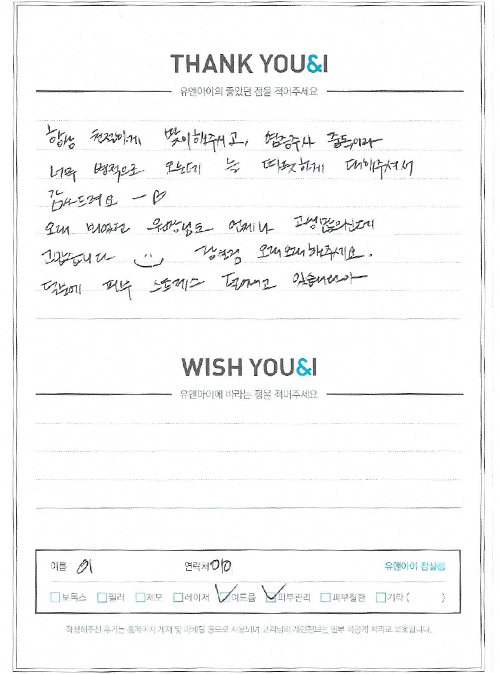 THANK YOU&I
유앤아이의 좋았던 점을 적어주세요
항상 친절하게 맞이해주시고, 염증주사 중독이라
너무 병적으로 오는데 늘 따뜻하게 대해주셔서
감사드려요 ♡
오래 원장님도 언제나 고생많으신데
고맙습니다 오래오래해주세요.
덕분에 피부 스트레스 덜어내고 있습니다아
WISH YOU&I
유앤아이에 바라는 점을 적어주세요
이름 이 연락처 010 유앤아이 잠실점
보톡스 필러 제모 레이저 여드름 피부관리 피부질환 기타 ( )
작성해주신 후기는 홈페이지 게재 및 마케팅 용도로 사용되며 고객님의 개인정보는 일부 비공개 처리로 보호됩니다.